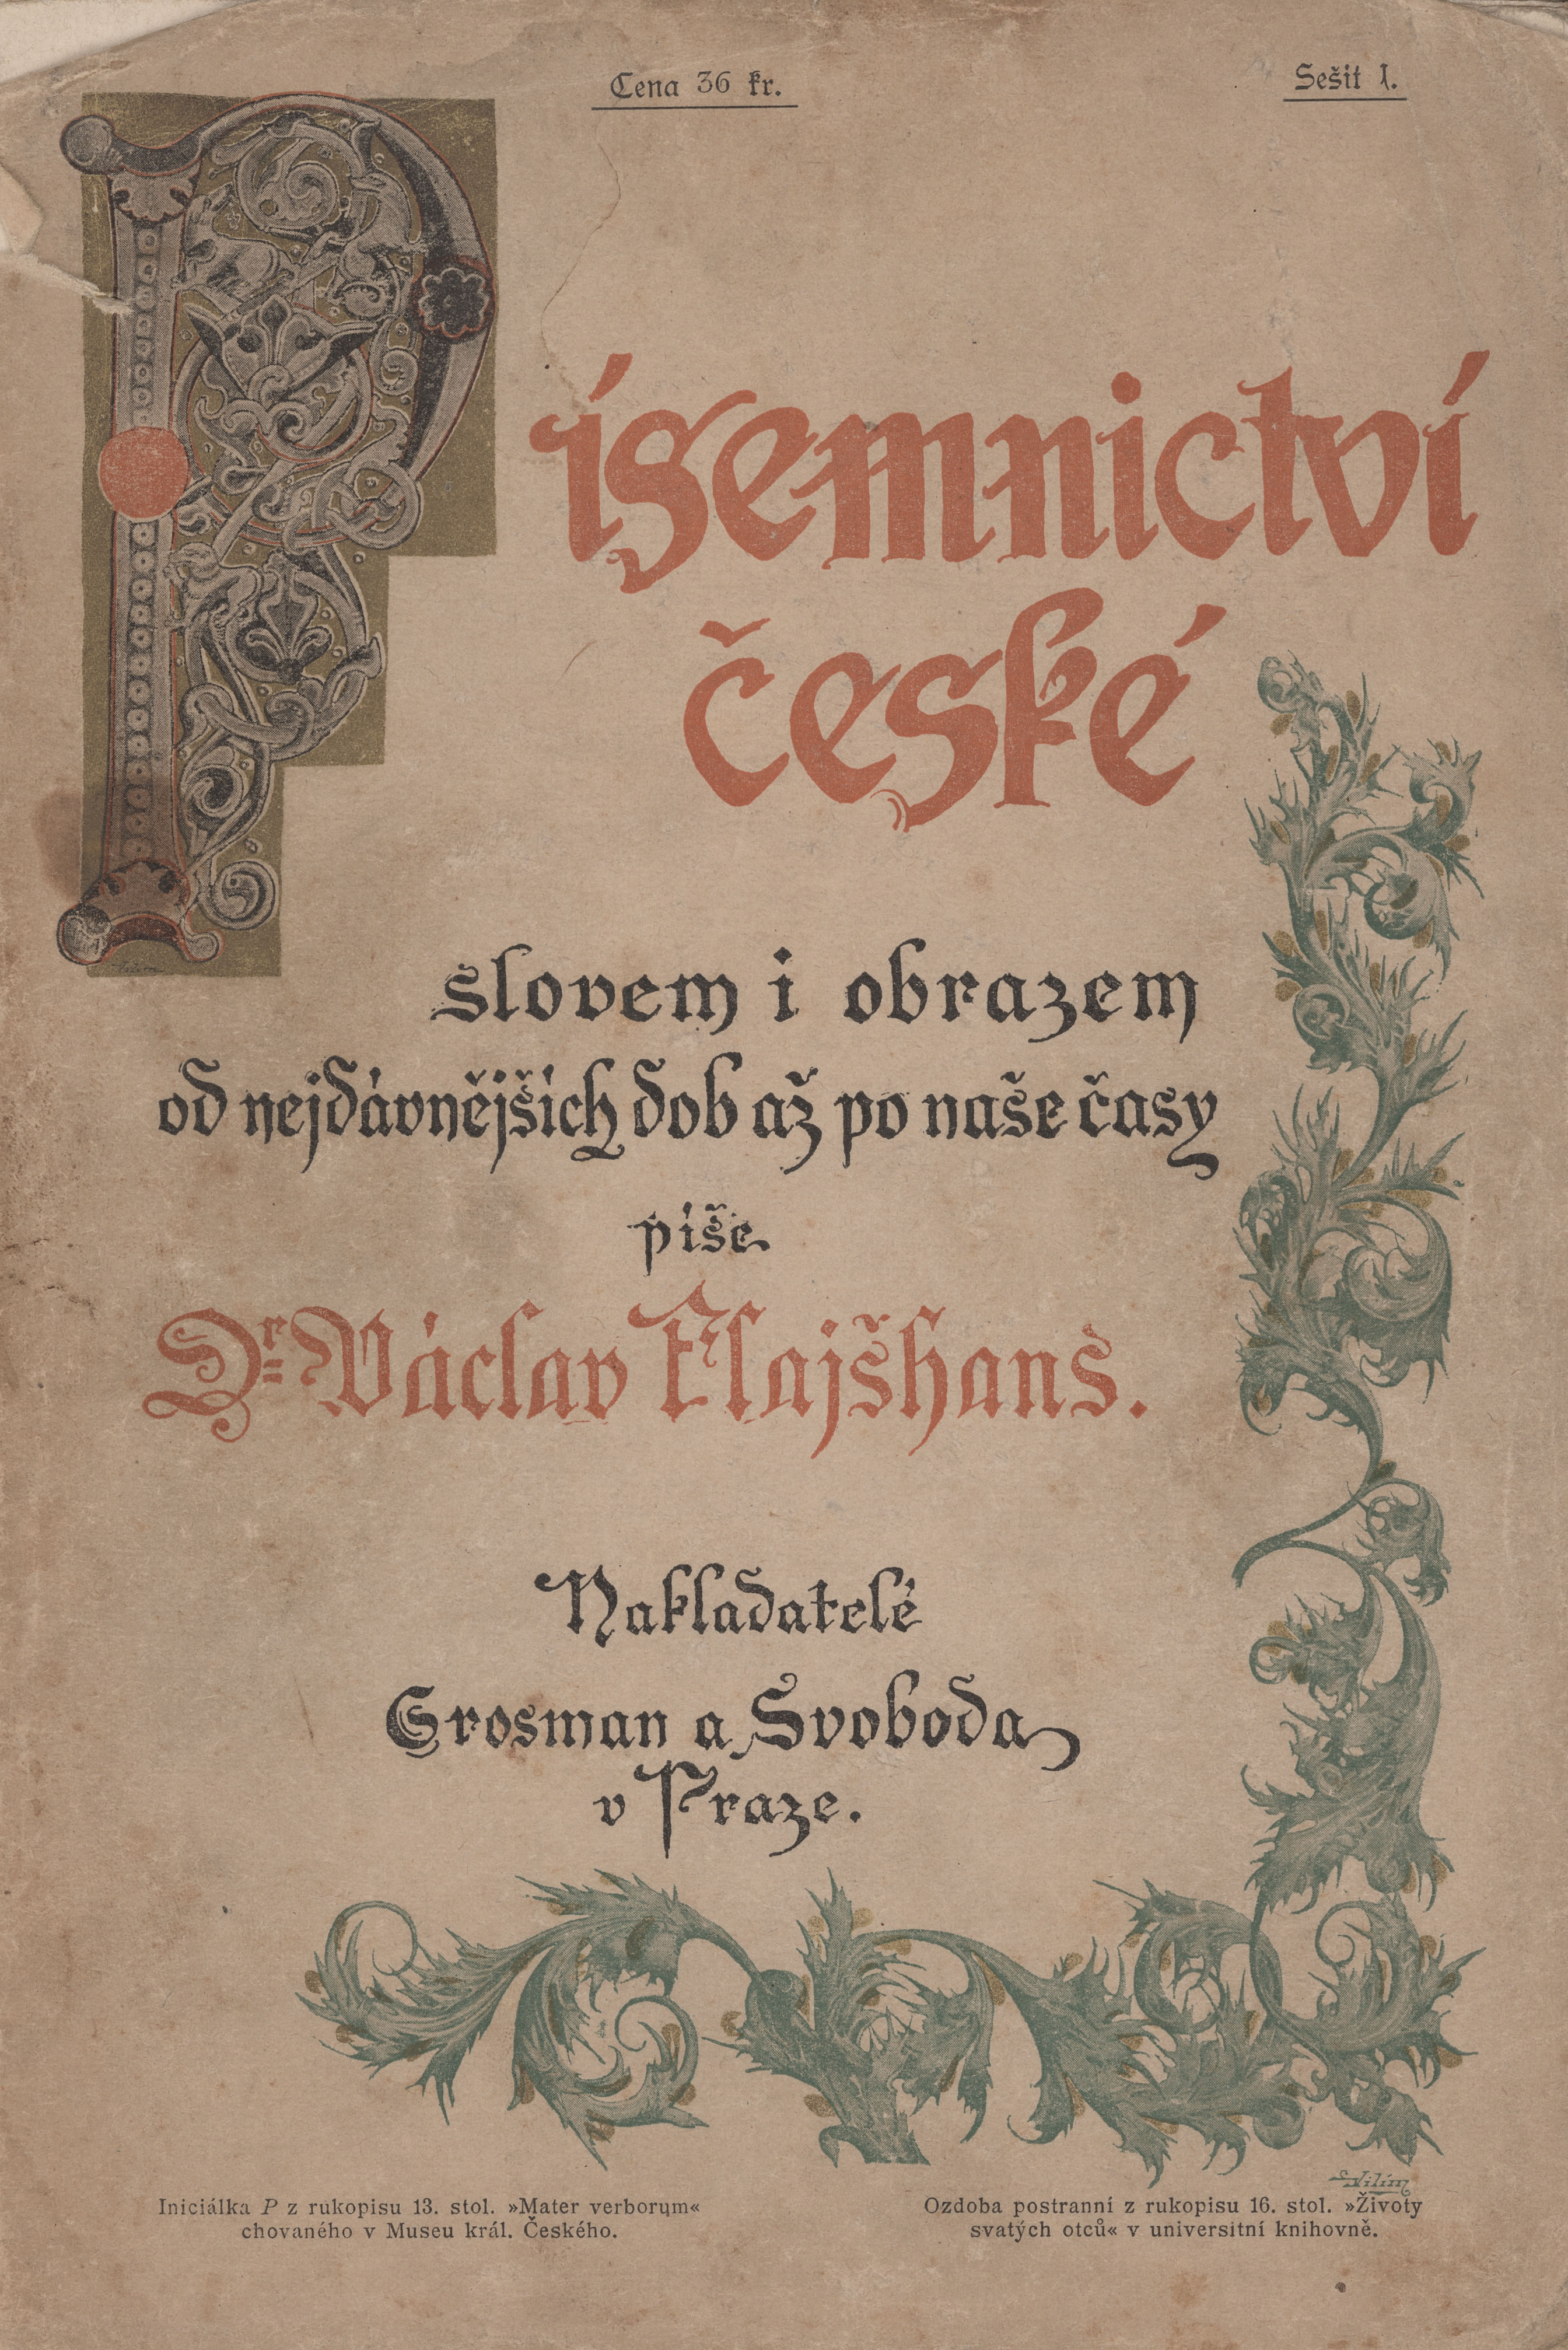 Cena 36 kr.
Sešit 1.
Písemnictví
české
slovem i obrazem
od nejdávnějších dob až po naše časy
píše
Dr. Václav Flajšhans.
Nakladatelé
Grosman a Svoboda
v Praze.
Vilím
Iniciálka P z rukopisu 13. stol. »Mater verborum«
chovaného v Museu král. Českého.
Ozdoba postranní z rukopisu 16. stol. »Životy
svatých otců« v universitní knihovně.